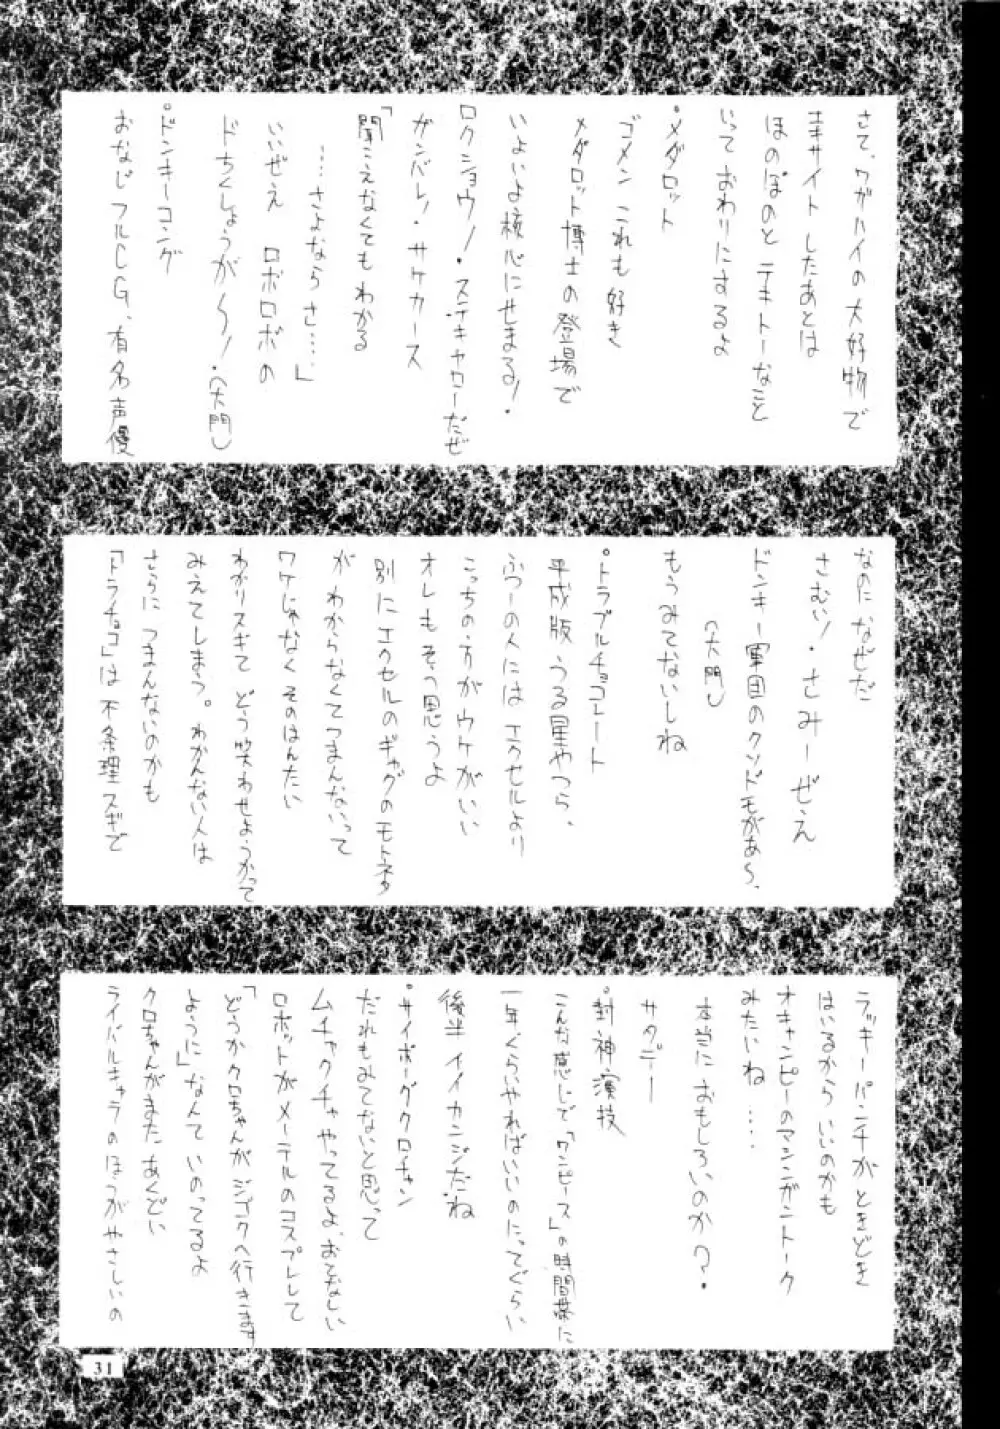 さて、ワガハイの大好物で
エキサイトしたあとは
ほのぼのとテキトーなこと
いっておわりにするよ
・メダロット
ゴメン これも好き
メダロット博士の登場で
いよいよ核心にせまる!・
ロクショウ!・ステキャローだぜ
ガンバレ!・サケカース
「聞こえなくてもわかる
……さよならさ…。」
いいぜえ ロボロボの
ドちくしょうが〜!・(大門)
・ドンキーコング
おなじフルCG、有名声優
なのになぜだ
さむい!・さみーぜえ
ドンキー軍団のクソドモがあ〜、
(大門)
もうみてないしね
・トラブルチョコレート
平成版うる星やつら、
ふつーの人にはエクセルより
こっちの方がウケがいい
オレもそう思うよ
別にエクセルのギャグのモトネタ
がわからなくてつまんないって
ワケじゃなくそのはんたい
わかりスギてどう笑わせようかって
みえてしまう。わかんない人は
さらにつまんないのかも
「トラチョコ」は不条理スギで
ラッキーパンチがときどき
はいるからいいのかも
オキャンピーのマシンガントーク
みたいね……
本当におもしろいのか?・
サタデー
・封神演技
こんな感じで「ワンピース」の時間帯に
一年くらいやればいいのにってくらい
後半イイカンジだね
・サイボーグクロチャン
だれもみてないと思って
ムチャクチャやってるよ、おてなしい
ロボットがメーテルのコスプレして
「どうかクロちゃんがジゴクへ行きます
ように」なんていのってるよ
クロちゃんがまたあくどい
ライバルキャラのほうがやさしいの
31